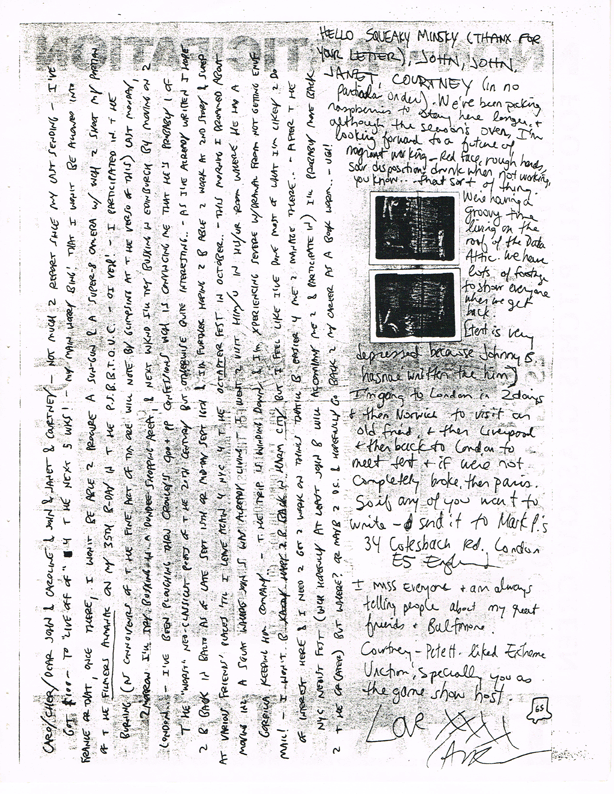 CARO/CHER/DEAR JOHN & CAROLINE & JOHN & JANET & COURTNEY - NOT MUCH 2 REPORT SINCE MY LAST SENDING - I'VE
GOT £100- TO "LIVE OFF OF" 4 THE NEXT 5 WKS! - MY MAIN WORRY BEING THAT I WON'T BE ALLOWED INTO
FRANCE OR THAT, ONCE THERE, I WON'T BE ABLE 2 PROCURE A SUN-GUN & A SUPER-8 CAMERA W/ WCH 2 SHOOT MY PORTION
OF THE FILLERS ON MY 35TH B-DAY IN THE P.S.B.B.T.O.U.C. - OI VEH! - I PARTICIPATED IN THE
BURNING (N CONNOISEURS OF THE FINE ART OF WILL NOTE BY GLIMPSING AT THE VERSO OF THIS) LAST MONDAY,
2MORROW I'M TRY BUSKING IN A DUNDEE SHOPPING AREA & NEXT WKND I'LL TRY BUSKING IN EDINBURGH B4 MOVING ON 2
LONDON - I'VE BEEN PLOUGHING THRU CROWLEY'S 900+ PP CONFESSIONS WCH IS CONVINCING ME THAT HE'S PROBABLY 1 OF
THE "WORST" NEO-CLASSICIST POETS OF THE 20TH CENTURY BUT OTHERWISE QUITE INTERESTING.. AS I'VE ALREADY WRITTEN I HOPE
2 B BACK IN BALTO AS OF LATE SEPT 15TH OR MIDDAY SEPT 16TH & I'M FURTHER HOPING 2 B ABLE 2 WORK AT 2ND STORY & SLEEP
AT VARIOUS "FRIENDS" PLACES 'TIL I LEAVE AGAIN 4 NYC 4 THE FEST IN OCTOBER.. - THIS MORNING I DREAMED ABOUT
MOVING IN2 A SQUAT WHERE JOHN S WAS ALREADY LIVING. I WENT 2 VISIT HIM/U IN HIS/UR ROOM WHERE HE HAD A
GORILLA KEEPING HIM COMPANY.. - THE TRIP IS WINDING DOWN & I'M XPERIENCING SEVERE W/DRAWAL FROM NOT GETTING ENUF
MAIL! - I WON'T B 2 B BACK IN HARM CITY BUT I FEEL LIKE I'VE DONE MOST OF WHAT I'M LIKELY 2 DO
OF INTEREST HERE & I NEED 2 GET 2 WORK ON THINGS THAT'LL B EASIER 4 ME 2 MANAGE THERE.. - AFTER THE
NYC NEOIST FEST (WCH HOPEFULLY AT LEAST JOHN B WILL ACCOMPANY ME 2 & PARTICIPATE IN) I'LL PROBABLY MOVE BACK
2 THE CR(ATER) BUT WHERE? OR MAYB 2 D.C. & HOPEFULLY GO BACK 2 MY CAREER AS A BOOK WORM.. - UGH!
HELLO SQUEAKY MINSKY (THANX FOR
YOUR LETTER), JOHN, JOHN,
JANET, COURTNEY (in no
particular order). We've been picking
raspberries to stay here longer, &
although the season's over, I'm
looking forward to a future of
migrant working - red face, rough hands,
sour disposition, drink when not working,
you know... that sort of thing.
We're having a
groovy time
living on the
roof of the Data
Attic. We have
lots of footage
to show everyone
when we get
back.
(tent is very
depressed because Johnny B.
has not written (to him)
I'm going to London in 2 days
& then Norwich to visit an
old friend, & then Liverpool
& then back to London to
meet tent & if we're not
completely broke, then Paris.
So if any of you want to
write - send it to Mark P.'s
34 Colesbach Rd. London
E5 England
I miss everyone & am always
telling people about my great
friends & Baltimore.
Courtney - Pete H. liked Extreme
Unction, specially you as
the game show host.
LOVE XXX